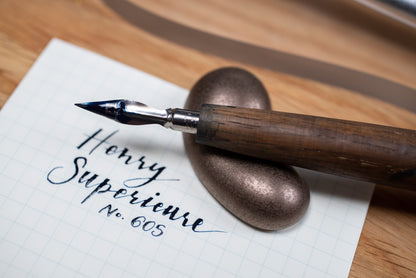 Henry
Superieure
No. 605